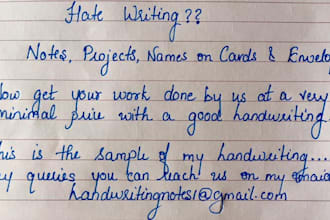 Hate Writing??
Notes, Projects, Names on Cards & Envelo
Now get your work done by us at a very
minimal price with a good handwriting.
his is the sample of my handwriting...
y queries you can reach us on my emai
handwritingnotes1@gmail.com